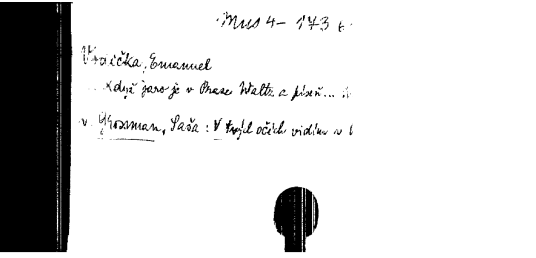 Mus 4 - 173
Emanuel
Když jaro je v Praze Waltz a píseň...
v. Grossman, Saša : V tvých očích vidím v